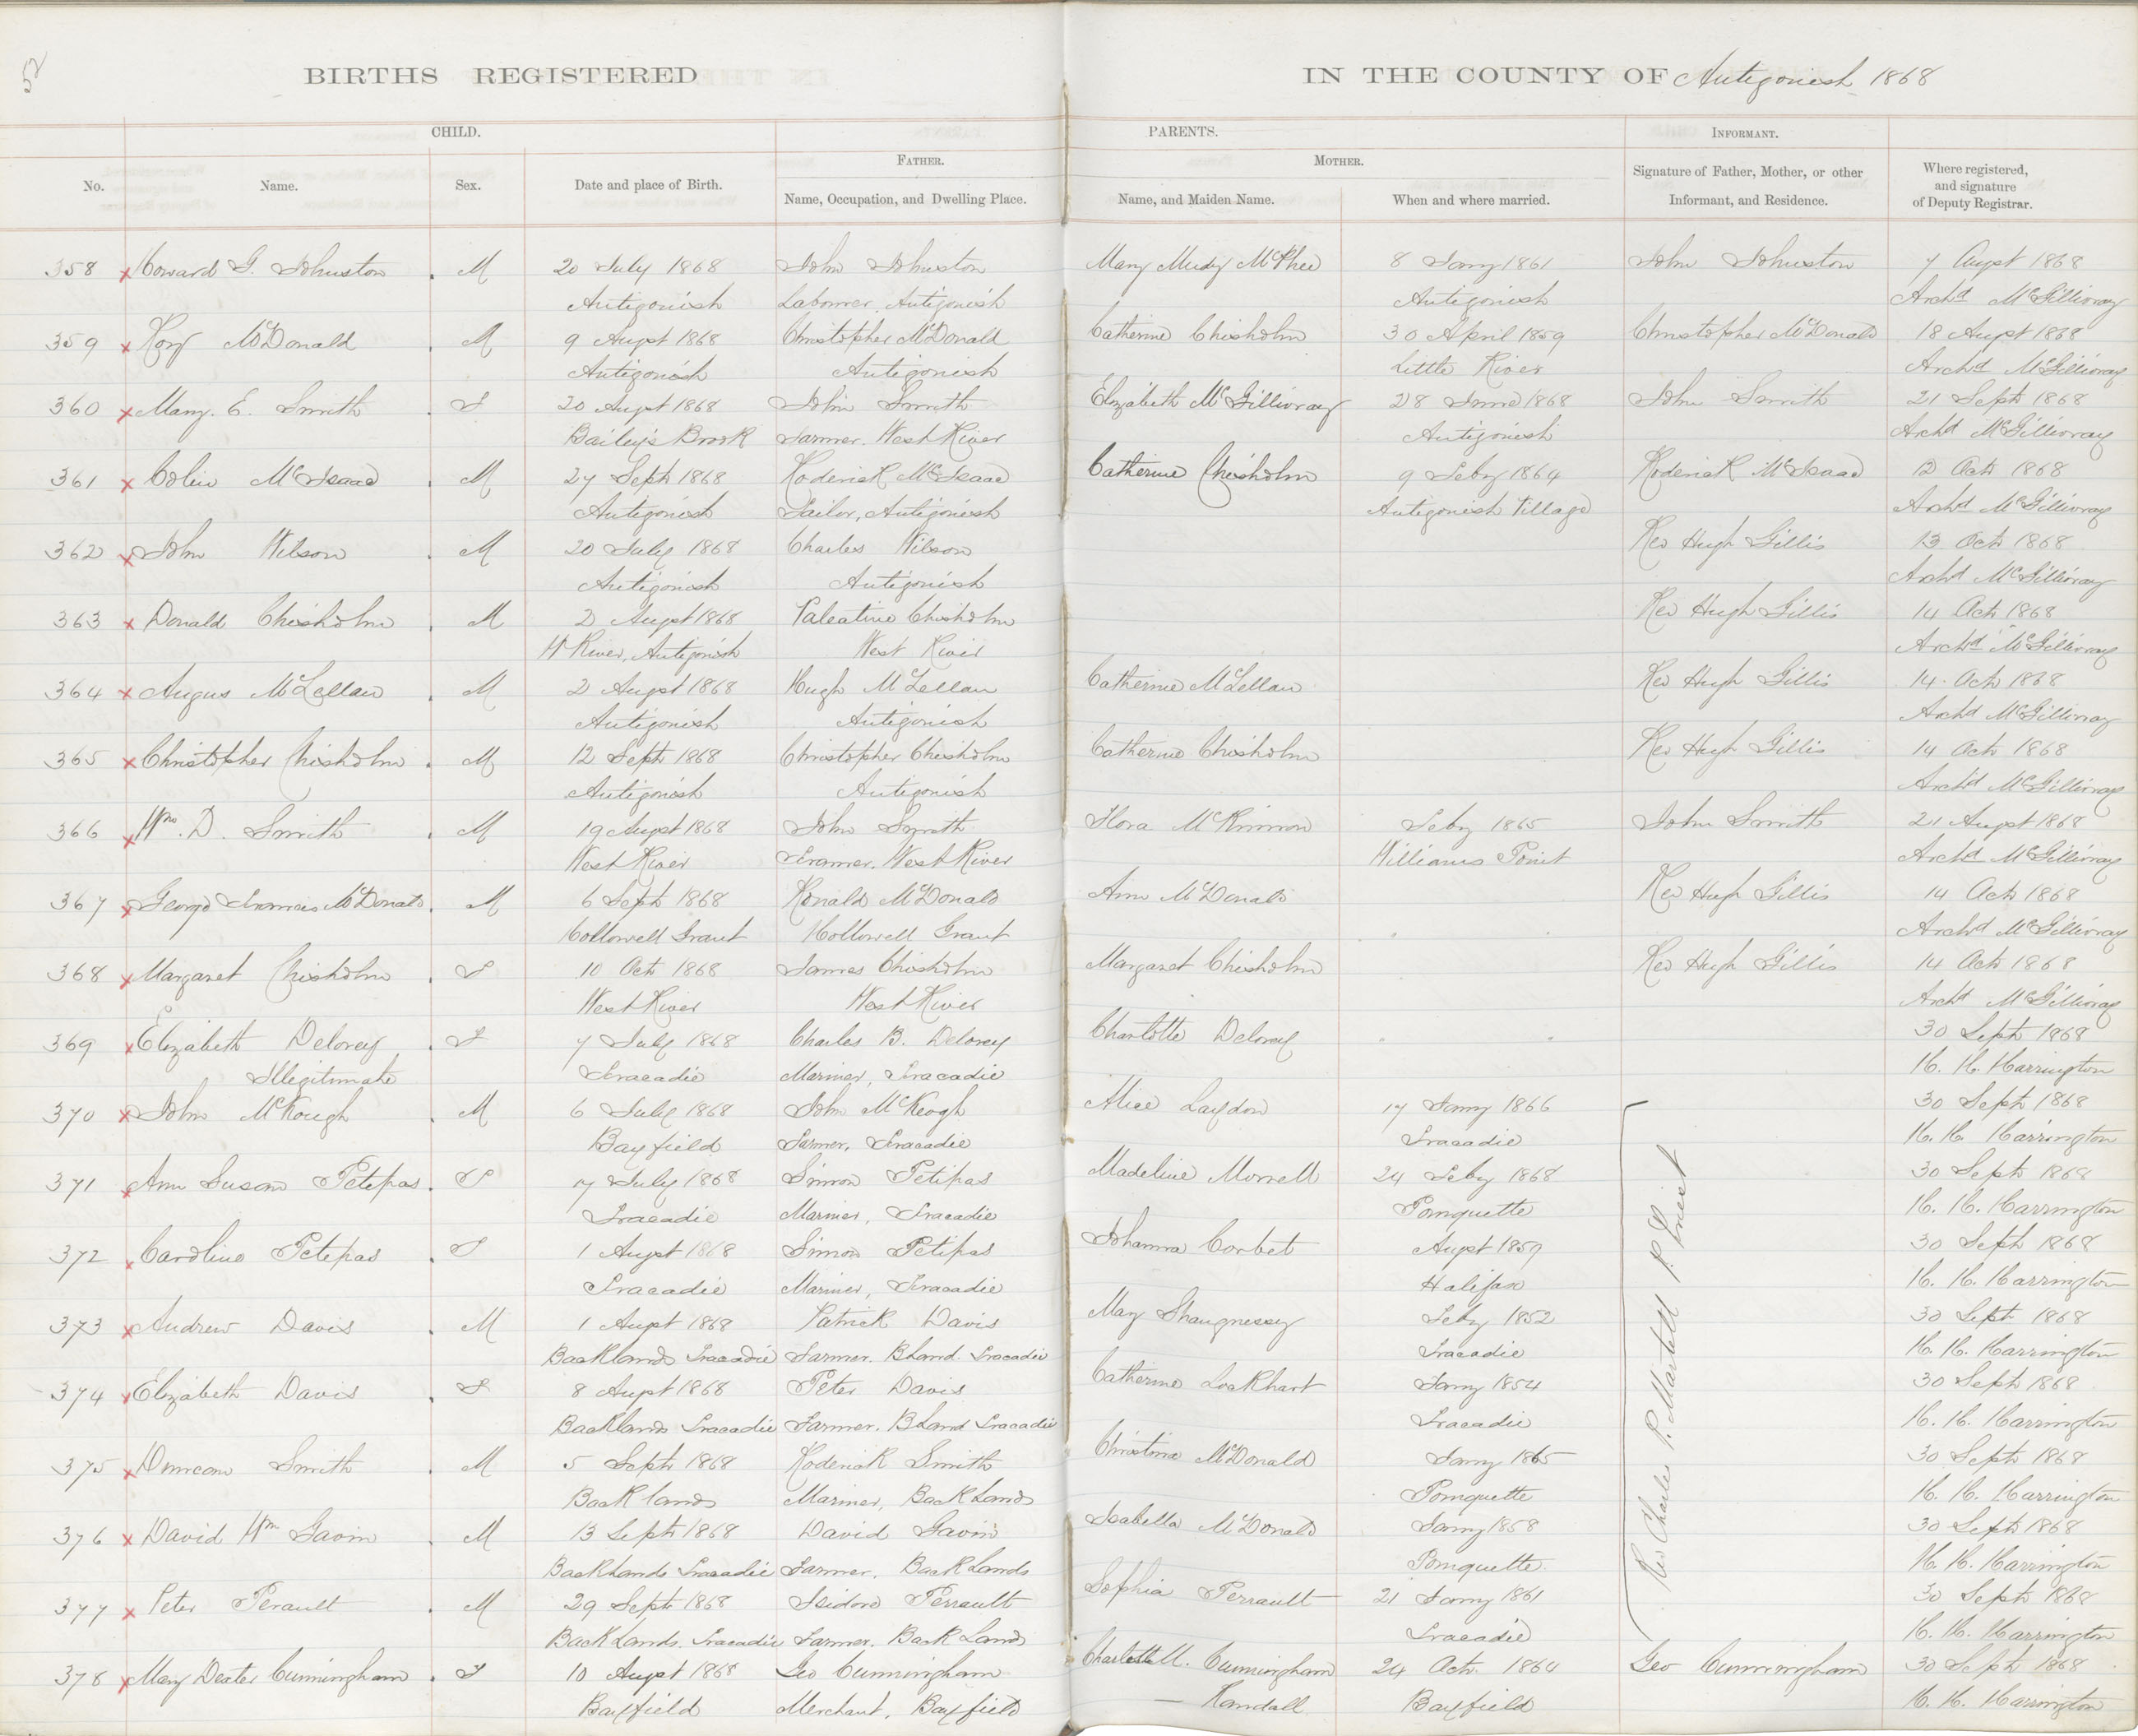 52
BIRTHS REGISTERED IN THE COUNTY OF Antigonish 1868
CHILD. PARENTS. INFORMANT.
FATHER. MOTHER.
No. Name. Sex. Date and place of Birth. Name, Occupation, and Dwelling Place. Name, and Maiden Name. When and where married. Signature of Father, Mother, or other Informant, and Residence. Where registered, and signature of Deputy Registrar.
358 Howard G. Johnston M 20 July 1868 John Johnston Mary McPhee 8 Jany 1861 John Johnston 7 Augst 1868
Antigonish Labourer, Antigonish Antigonish Archd McGillivray
359 Rory McDonald M 9 Augst 1868 Christopher McDonald Catherine Chisholm 30 April 1859 Christopher McDonald 18 Augst 1868
Antigonish Antigonish Little River Archd McGillivray
360 Mary. E. Smith F 20 Augst 1868 John Smith Elizabeth McGillivray 28 June 1868 John Smith 21 Sept 1868
Bailey's Brook Farmer. West River Antigonish Archd McGillivray
361 Colin McIsaac M 27 Sept 1868 Roderick McIsaac Catherine Chisholm 9 Feby 1864 Roderick McIsaac 2 Oct 1868
Antigonish Tailor, Antigonish Antigonish Village Archd McGillivray
362 John Wilson M 20 July 1868 Charles Wilson Rev Hugh Gillis 13 Oct 1868
Antigonish Antigonish Archd McGillivray
363 Donald Chisholm M 2 Augst 1868 Valentine Chisholm Rev Hugh Gillis 14 Oct 1868
W River, Antigonish West River Archd McGillivray
364 Angus McLellan M 2 Augst 1868 Hugh McLellan Catherine McLellan Rev Hugh Gillis 14 Oct 1868
Antigonish Antigonish Archd McGillivray
365 Christopher Chisholm M 12 Sept 1868 Christopher Chisholm Catherine Chisholm Rev Hugh Gillis 14 Oct 1868
Antigonish Antigonish Archd McGillivray
366 Wm. D. Smith M 19 Augst 1868 John Smith Flora McKinnon Feby 1865 John Smith 21 Augst 1868
West River Framer. West River Williams Point Archd McGillivray
367 George Francis McDonald M 6 Sept 1868 Ronald McDonald Ann McDonald Rev Hugh Gillis 14 Oct 1868
Hollowell Grant Hollowell Grant Archd McGillivray
368 Margaret Chisholm F 10 Oct 1868 James Chisholm Margaret Chisholm Rev Hugh Gillis 14 Oct 1868
West River West River Archd McGillivray
369 Elizabeth Delorey F 7 July 1868 Charles B. Delorey Charlotte Delorey 30 Sept 1868
Illegitimate Tracadie Mariner, Tracadie H. H. Harrington
370 John McKough M 6 July 1868 John McKeogh Alice Laydon 17 Jany 1866 30 Sept 1868
Bayfield Farmer, Tracadie Tracadie H. H. Harrington
371 Ann Susan Petipas F 17 July 1868 Simon Petipas Madeline Morrell 24 Feby 1868 30 Sept 1868
Tracadie Mariner, Tracadie Pomquette H. H. Harrington
372 Caroline Petipas F 1 Augst 1868 Simon Petipas Johanna Corbet Augst 1859 30 Sept 1868
Tracadie Mariner, Tracadie Halifax H. H. Harrington
373 Andrew Davis M 1 Augst 1868 Patrick Davis Mary Shaugnessy Feby 1852 30 Sept 1868
Backlands Tracadie Farmer. B Land. Tracadie Tracadie H. H. Harrington
374 Elizabeth Davis F 8 Augst 1868 Peter Davis Catherine Lockhart Jany 1854 30 Sept 1868
Backlands Tracadie Farmer. B Land Tracadie Tracadie H. H. Harrington
375 Duncan Smith M 5 Sept 1868 Roderick Smith Christina McDonald Jany 1865 30 Sept 1868
Back lands Mariner, Back Lands Pomquette H. H. Harrington
376 David Wm Gavin M 13 Sept 1868 David Gavin Isabella McDonald Jany 1858 30 Sept 1868
Back Lands Tracadie Farmer, Back Lands Pomquette H. H. Harrington
377 Peter Perault M 29 Sept 1868 Isidore Perrault Sophia Perrault 21 Jany 1861 30 Sept 1868
Back Lands. Tracadie Farmer. Back Lands Tracadie H. H. Harrington
Rev Charles P. Martell P. Priest
378 Mary Dexter Cunningham F 10 Augst 1868 Geo Cunningham Charlotte U. Cunningham 24 Oct 1864 Geo Cunningham 30 Sept 1868
Bayfield Merchant, Bayfield — Randall Bayfield H. H. Harrington